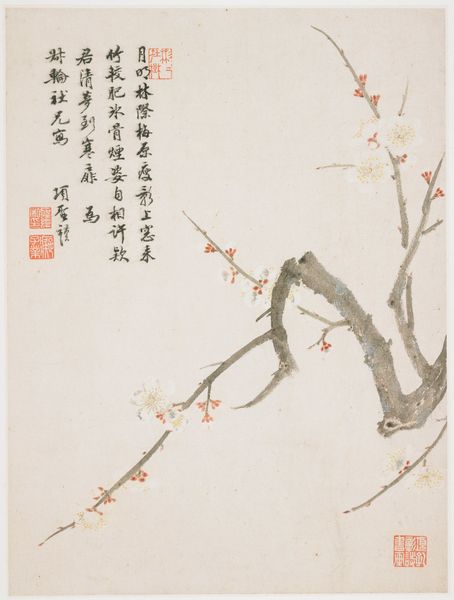 月明林際梅原瘦影上窓來
竹較肥冰骨煙姿自相許欵
君清夢到寒扉 為
輪社兄寫 項聖謨